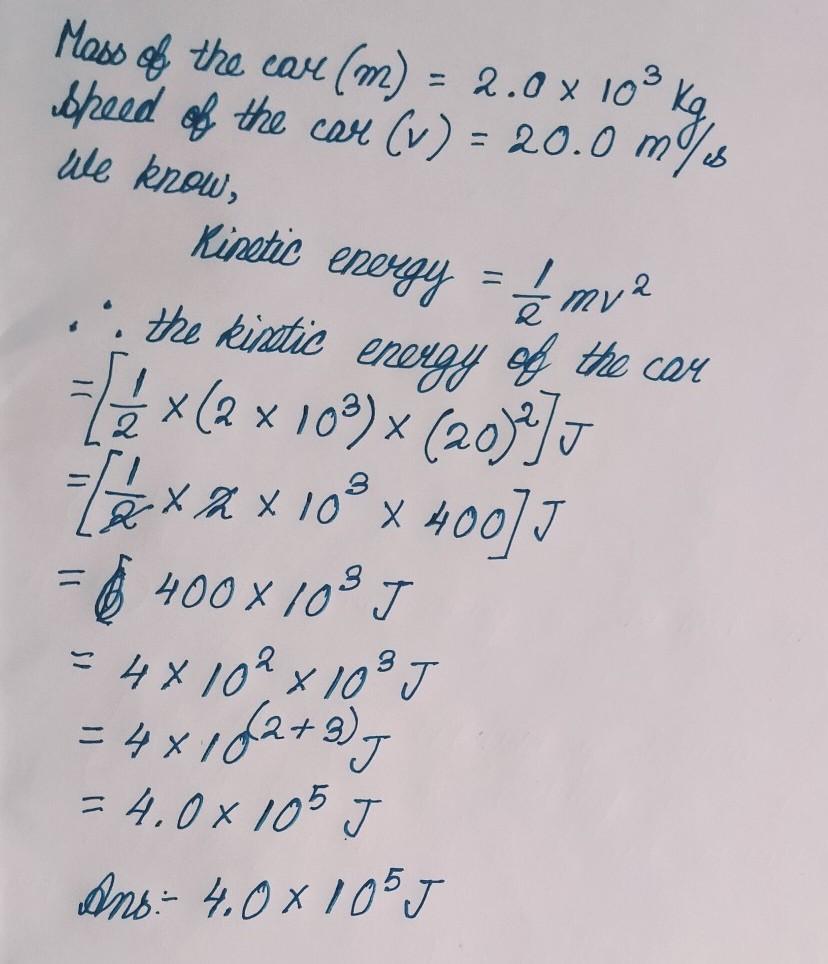 Mass of the car (m) = 2.0 × 10³ Kg
Speed of the car (v) = 20.0 m/s
We know,
Kinetic energy = 1/2 mv²
∴ the kinetic energy of the car
= [1/2 × (2 × 10³) × (20)²] J
= [1/2 × 2 × 10³ × 400] J
= 400 × 10³ J
= 4 × 10² × 10³ J
= 4 × 10⁽²⁺³⁾ J
= 4.0 × 10⁵ J
Ans:- 4.0 × 10⁵ J